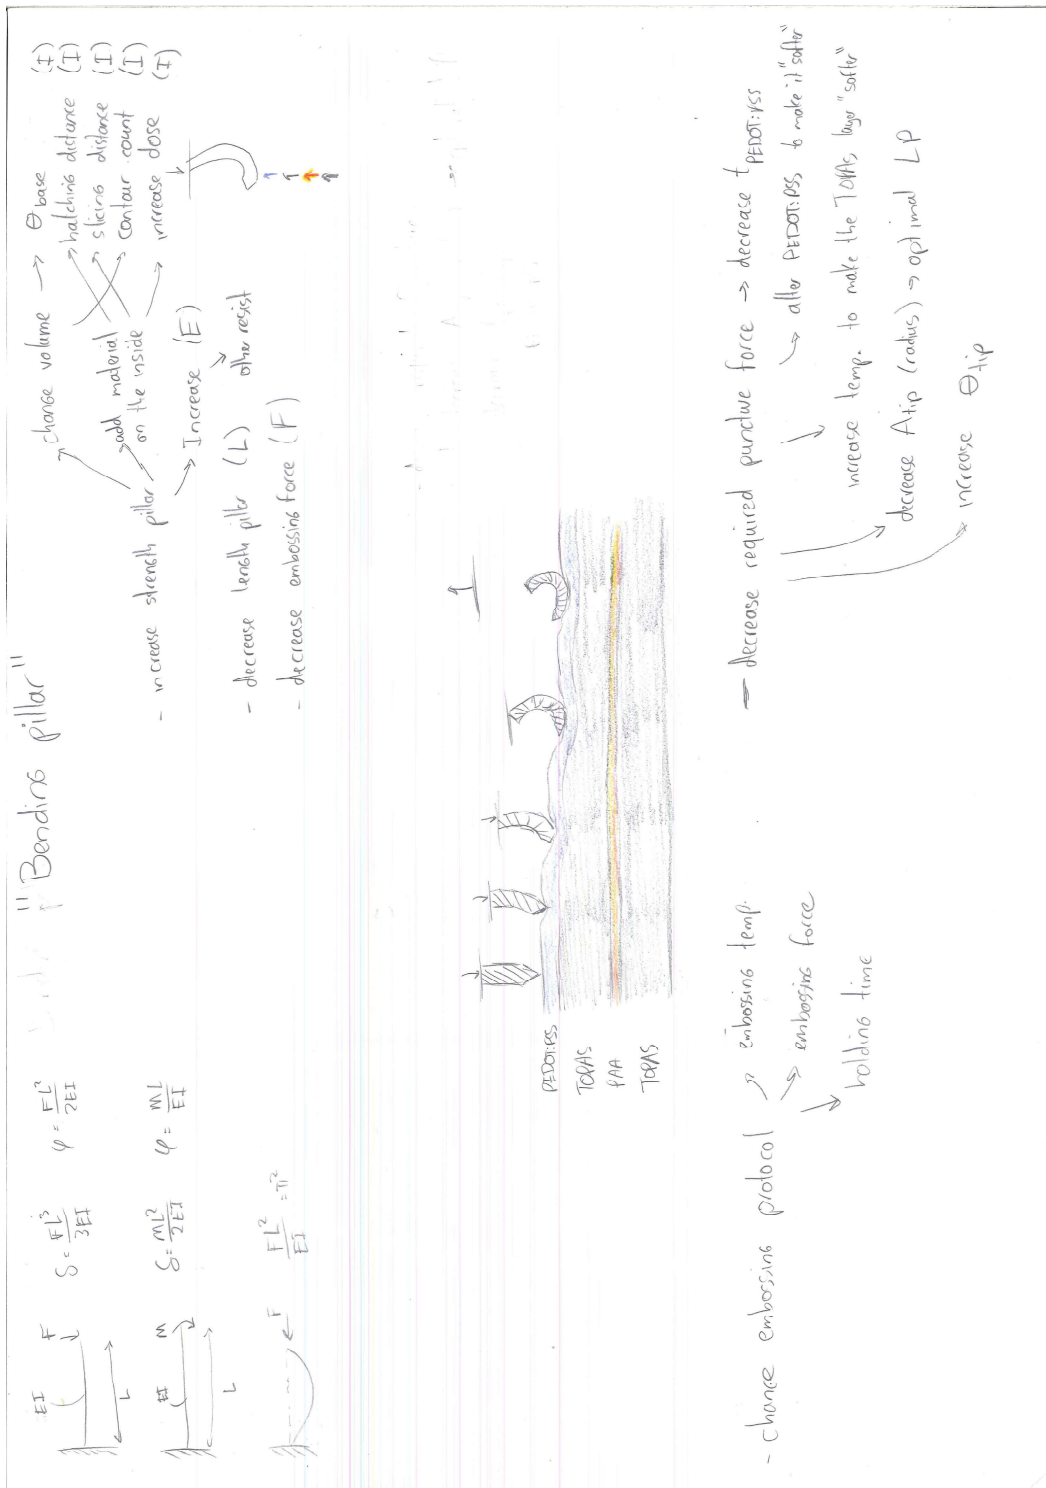 "Bending pillar"
EI
F
L
δ = FL³/3EI
φ = FL²/2EI
EI
M
L
δ = ML²/2EI
φ = ML/EI
F
FL²/EI = π²
- increase strength pillar
change volume → θbase (I)
add material
on the inside
hatching distance (I)
slicing distance (I)
contour count (I)
increase dose (I)
Increase (E)
other resist
- decrease length pillar (L)
- decrease embossing force (F)
PEDOT:PSS
TOPAS
PAA
TOPAS
- change embossing protocol
embossing temp.
embossing force
holding time
- decrease required puncture force → decrease tPEDOT:PSS
alter PEDOT:PSS, to make it "softer"
increase temp. to make the TOPAS, layer "softer"
decrease Atip (radius) → optimal LP
increase θtip